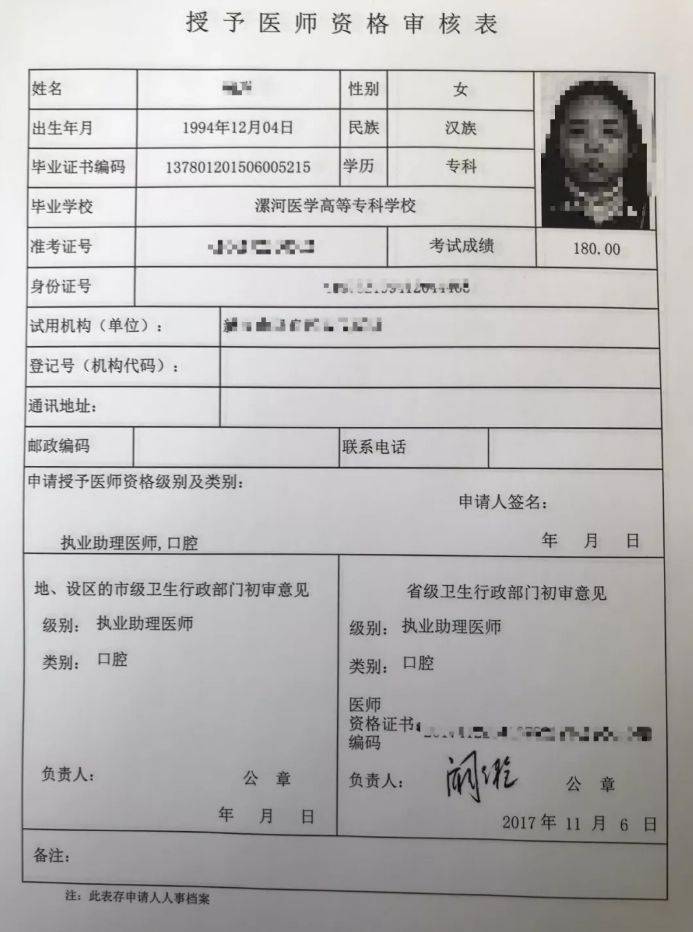 授予医师资格审核表
姓名 性别 女
出生年月 1994年12月04日 民族 汉族
毕业证书编码 137801201506005215 学历 专科
毕业学校 漯河医学高等专科学校
准考证号 考试成绩 180.00
身份证号
试用机构（单位）：
登记号（机构代码）：
通讯地址：
邮政编码 联系电话
申请授予医师资格级别及类别：
申请人签名：
执业助理医师,口腔 年 月 日
地、设区的市级卫生行政部门初审意见
级别：执业助理医师
类别：口腔
负责人： 公 章
年 月 日
省级卫生行政部门初审意见
级别：执业助理医师
类别：口腔
医师
资格证书
编码
负责人： 公 章
2017 年 11 月 6 日
备注：
注：此表存申请人人事档案